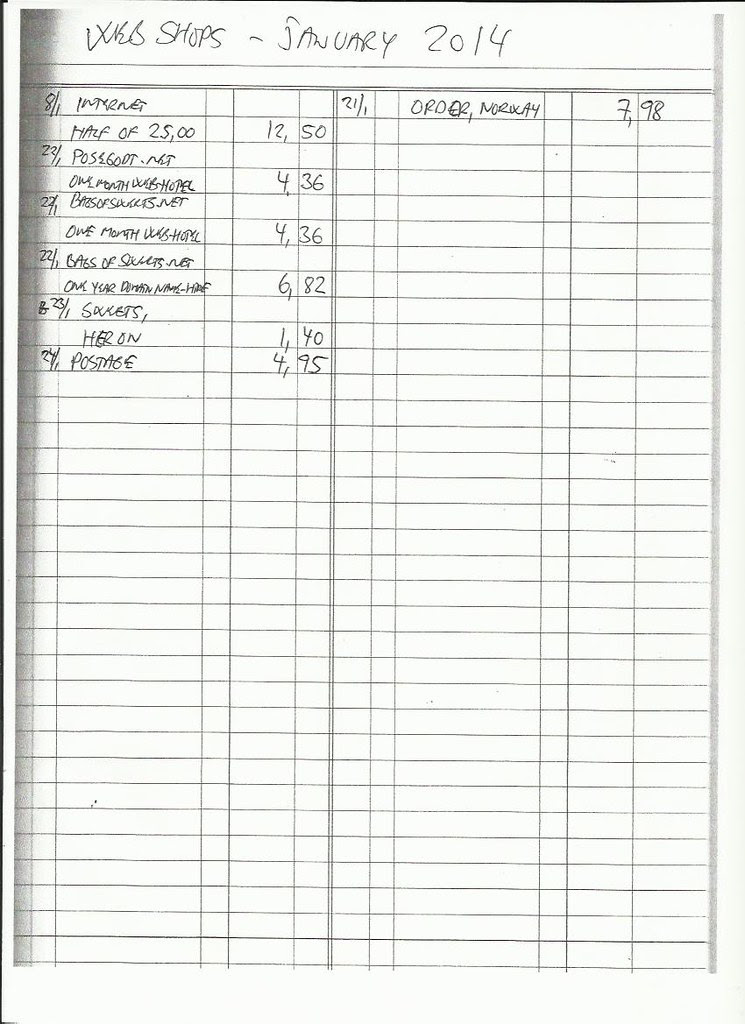 WEB SHOPS - JANUARY 2014
8/1 INTERNET
HALF OF 25,00 12,50
22/1 POSEGODT.NET
ONE MONTH WEB-HOTEL 4,36
22/1 BAGSOFSWEETS.NET
ONE MONTH WEB-HOTEL 4,36
22/1 BAGS OF SWEETS.NET
ONE YEAR DOMAIN NAME-HIRE 6,82
23/1 SWEETS,
HERON 1,40
24/1 POSTAGE 4,95
21/1 ORDER, NORWAY 7,98